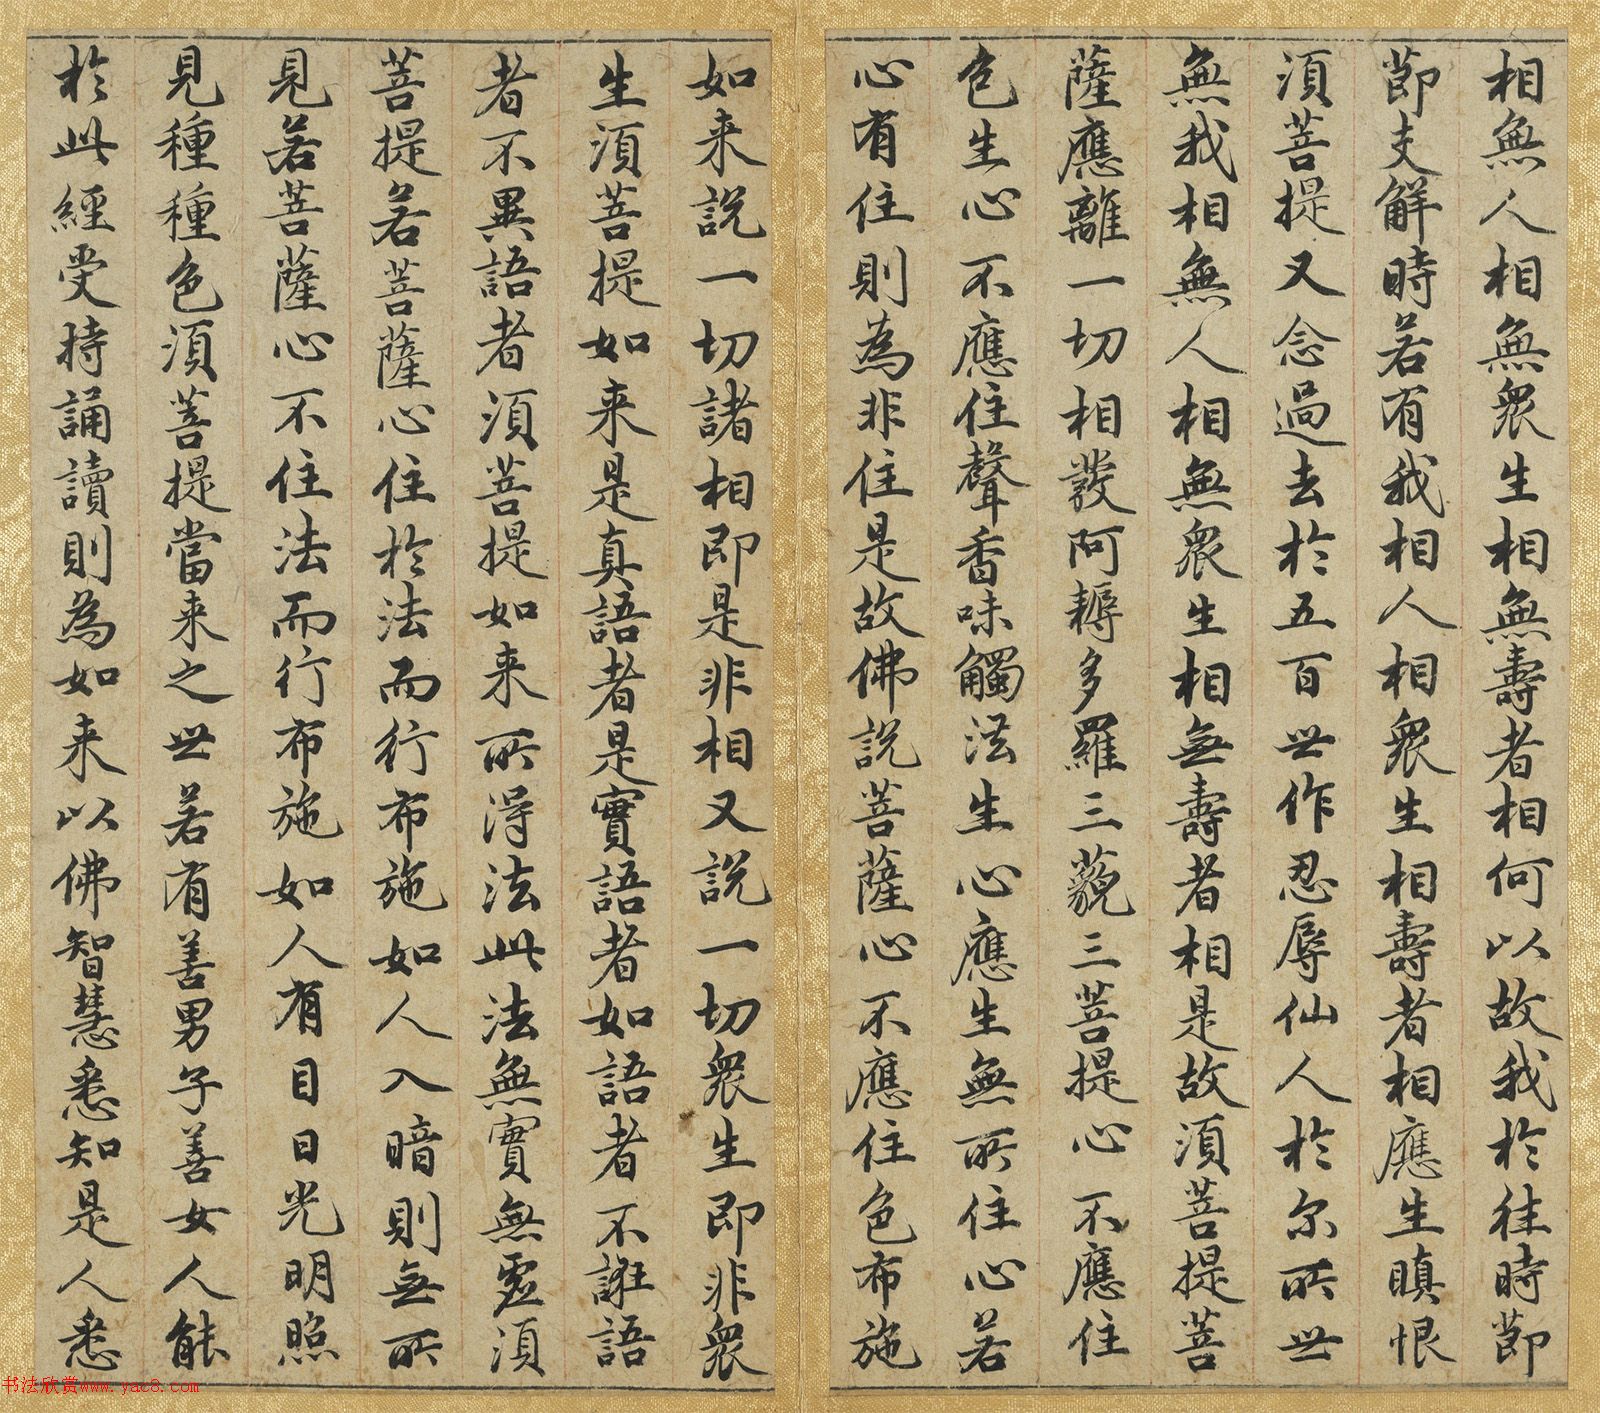 相無人相無衆生相無壽者相何以故我於往時節
節支解時若有我相人相衆生相壽者相應生瞋恨
須菩提又念過去於五百世作忍辱仙人於尔所世
無我相無人相無衆生相無壽者相是故須菩提菩
薩應離一切相發阿耨多羅三藐三菩提心不應住
色生心不應住聲香味觸法生心應生無所住心若
心有住則為非住是故佛說菩薩心不應住色布施
如来說一切諸相即是非相又說一切衆生即非衆
生須菩提如来是真語者是實語者如語者不誑語
者不異語者須菩提如来所得法此法無實無虛須
菩提若菩薩心住於法而行布施如人入暗則無所
見若菩薩心不住法而行布施如人有目日光明照
見種種色須菩提當来之世若有善男子善女人能
於此經受持誦讀則為如来以佛智慧悉知是人悉
书法欣赏www.yac8.com